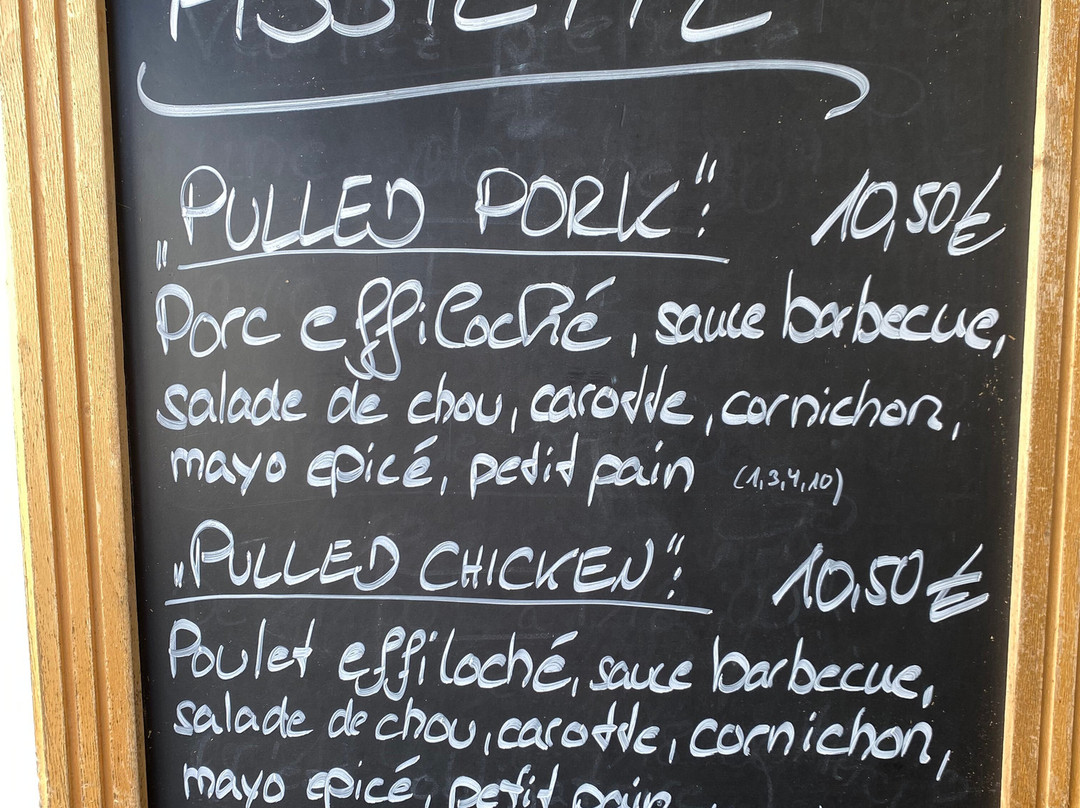 ASSIETTE
„PULLED PORK“: 10,50€
Porc effiloché, sauce barbecue,
salade de chou, carotte, cornichon,
mayo epicé, petit pain (1,3,4,10)
„PULLED CHICKEN“: 10,50€
Poulet effiloché, sauce barbecue,
salade de chou, carotte, cornichon,
mayo epicé, petit pain